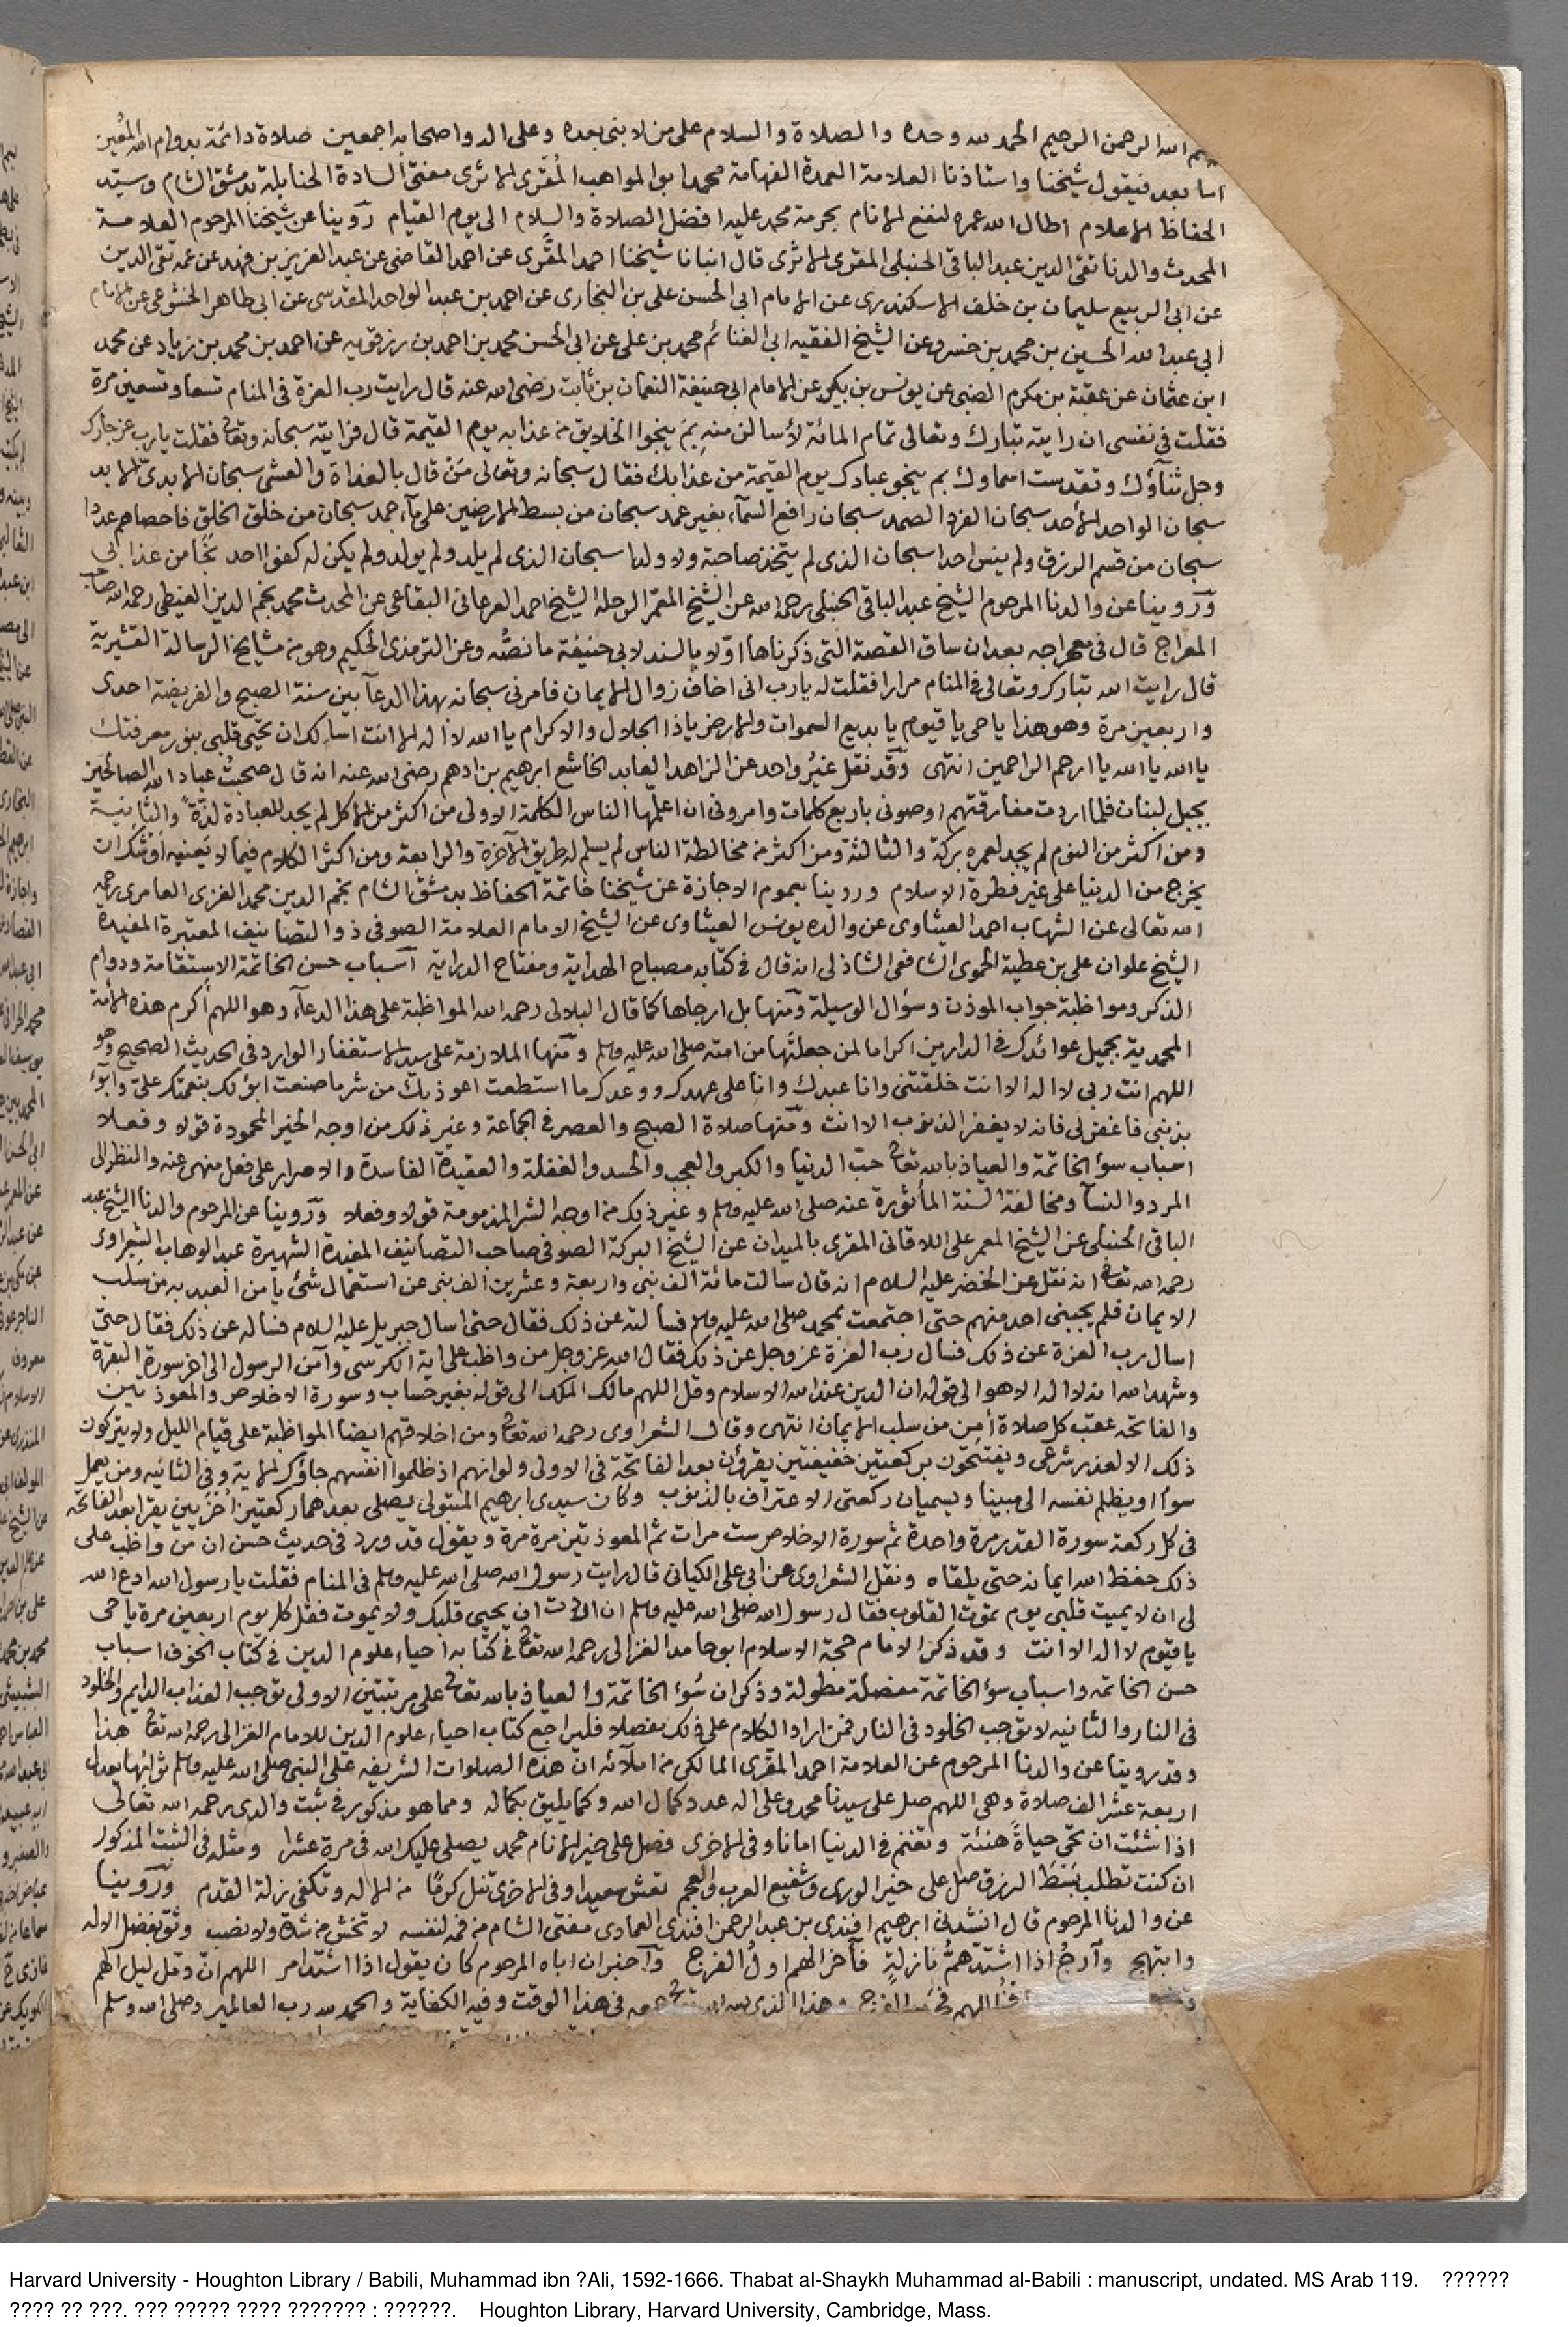 بسم الله الرحمن الرحيم الحمد لله وحده والصلاة والسلام على من لا نبي بعده وعلى اله واصحابه اجمعين صلاة دائمة بدوام الله المعين
اما بعد فيقول شيخنا واستاذنا العلامة العمدة الفهامة محمد ابو المواهب المقرى الاثرى مفتى السادة الحنابلة بدمشق الشام وسيد
الحفاظ الاعلام اطال الله عمره لنفع الانام بحرمة محمد عليه افضل الصلاة والسلام الى يوم القيام روينا عن شيخنا المرحوم العلامة
المحدث والدنا تقى الدين عبد الباقى الحنبلى المقرى الاثرى قال انبانا شيخنا احمد المقرى عن احمد القاضى عن عبد العزيز بن فهد عن عمه تقى الدين
عن ابى الربيع سليمان بن خلف الاسكندرى عن الامام ابى الحسن على بن البخارى عن احمد بن عبد الواحد المقدسى عن ابى طاهر الخشوعى عن الامام
ابى عبد الله الحسين بن محمد بن خسرو عن الشيخ الفقيه ابى الغنائم محمد بن على عن ابى الحسن محمد بن احمد بن رزقويه عن احمد بن محمد بن زياد عن محمد
ابن عثمان عن عقبة بن مكرم الضبى عن يونس بن بكير عن الامام ابى حنيفة النعمان بن ثابت رضى الله عنه قال رايت رب العزة فى المنام تسعا وتسعين مرة
فقلت فى نفسى ان رايته تبارك وتعالى تمام المائة لأسالن منه بم ينجوا الخلايق من عذابه يوم القيمة قال فرايته سبحانه وتعالى فقلت يارب عز جارك
وجل ثناؤك وتقدست اسماوك بم ينجو عبادك يوم القيمة من عذابك فقال سبحانه وتعالى من قال بالغداة والعشى سبحان الابدى الابد
سبحان الواحد الأحد سبحان الفرد الصمد سبحان رافع السمآء بغير عمد سبحان من بسط الارضين على مآء جمد سبحان من خلق الخلق فاحصاهم عددا
سبحان من قسم الرزق ولم ينس احدا سبحان الذى لم يتخذ صاحبة ولا ولدا سبحان الذى لم يلد ولم يولد ولم يكن له كفوا احد نجا من عذابى
وروينا عن والدنا المرحوم الشيخ عبد الباقى الحنبلى رحمه الله عن الشيخ المعمر الرحلة الشيخ احمد العرعانى البقاعى عن المحدث محمد نجم الدين الغيطى رحمه الله صاحب
المعراج قال فى معراجه بعد ان ساق القصة التى ذكرناها اولا بالسند لابى حنيفة ما نصه وعن الترمذى الحكيم وهو من مشايخ الرسالة القشيرية
قال رايت الله تبارك وتعالى فى المنام مرارا فقلت له يارب انى اخاف زوال الايمان فامرنى سبحانه بهذا الدعآ بين سنة الصبح والفريضة احدى
واربعين مرة وهو هذا ياحى يا قيوم يا بديع السموات والارض ياذا الجلال والاكرام يا الله لا اله الا انت اسالك ان تحيى قلبى بنور معرفتك
يا الله يا الله يا ارحم الراحمين انتهى وقد نقل غير واحد عن الزاهد العابد الخاشع ابرهيم بن ادهم رضى الله عنه انه قال صحبت عباد الله الصالحين
بجبل لبنان فلما اردت مفارقتهم اوصونى باربع كلمات وامرونى ان اعلمها الناس الكلمة الاولى من اكثر من الاكل لم يجد للعبادة لذة والثانية
ومن اكثر من النوم لم يجد لعمره بركة والثالثة ومن اكثر من مخالطة الناس لم يسلم له طريق الآخرة والرابعة ومن اكثر الكلام فيما لا يعنيه أوشك ان
يخرج من الدنيا على غير فطرة الاسلام وروينا بعموم الاجازة عن شيخنا خاتمة الحفاظ بدمشق الشام نجم الدين محمد الغزى العامرى رحمه
الله تعالى عن الشهاب احمد العيثاوى عن والده يونس العيثاوى عن الشيخ الامام العلامة الصوفى ذو التصانيف المعتبرة المفيدة
الشيخ علوان على بن عطية الحموى الشافعى الشاذلى انه قال فى كتابه مصباح الهداية ومفتاح الدراية أسباب حسن الخاتمة الاستقامة ودوام
الذكر ومواظبة جواب الموذن وسؤال الوسيلة ومنها بل ارجاها كما قال البلالى رحمه الله المواظبة على هذا الدعآء وهو اللهم أكرم هذه الأمة
المحمدية بجميل عوائدك فى الدارين اكراما لمن جعلتها من امته صلى الله عليه وسلم ومنها الملازمة على سيد الاستغفار الوارد فى الحديث الصحيح وهو
اللهم انت ربى لا اله الا انت خلقتنى وانا عبدك وانا على عهدك ووعدك ما استطعت اعوذ بك من شر ما صنعت ابؤ لك بنعمتك على وابوء
بذنبى فاغفر لى فانه لا يغفر الذنوب الا انت ومنها صلاة الصبح والعصر فى الجماعة وغير ذلك من اوجه الخير المحمودة قولا وفعلا
اسباب سؤ الخاتمة والعياذ بالله تعالى حب الدنيا والكبر والعجب والحسد والغفلة والعقيدة الفاسدة والاصرار على فعل منهى عنه والنظر الى
المرد والنسآ ومخالفة السنة المأثورة عنه صلى الله عليه وسلم وغير ذلك من اوجه الشر المذمومة قولا وفعلا وروينا عن المرحوم والدنا الشيخ عبد
الباقى الحنبلى عن الشيخ المعمر على اللاقانى المقرى بالميدان عن الشيخ البركة الصوفى صاحب التصانيف المفيدة الشهيرة عبد الوهاب الشعراوى
رحمه الله تعالى انه نقل عن الخضر عليه السلام انه قال سالت مائة الف نبى واربعة وعشرين الف نبى عن استعمال شئ يامن العبد به من سلب
الايمان فلم يجبنى احد منهم حتى اجتمعت بمحمد صلى الله عليه وسلم فسالته عن ذلك فقال حتى اسال جبريل عليه السلام فساله عن ذلك فقال حتى
اسال رب العزة عن ذلك فسال رب العزة عز وجل عن ذلك فقال الله عز وجل من واظب على اية الكرسى وآمن الرسول الى اخر سورة البقرة
وشهد الله انه لا اله الا هو الى قوله ان الدين عند الله الاسلام وقل اللهم مالك الملك الى قوله بغير حساب وسورة الاخلاص والمعوذتين
والفاتحة عقب كل صلاة أمن من سلب الايمان انتهى وقال الشعراوى رحمه الله تعالى ومن اخلاقهم ايضا المواظبة على قيام الليل ولا يتركون
ذلك الا لعذر شرعى ويفتتحون بركعتين خفيفتين يقرؤن بعد الفاتحة فى الاولى ولو انهم اذ ظلموا انفسهم جاؤك الاية وفى الثانيه ومن يعمل
سوأ او يظلم نفسه الى مبينا ويسميان ركعتى الاعتراف بالذنوب وكان سيدى ابرهيم المتبولى يصلى بعدهما ركعتين أخريين يقرا بعد الفاتحة
فى كل ركعة سورة القدر مرة واحدة ثم سورة الاخلاص ست مرات ثم المعوذتين مرة مرة ويقول قد ورد فى حديث حسن ان من واظب على
ذلك حفظ الله ايمانه حتى يلقاه ونقل الشعراوى عن ابى على الكيانى قال رايت رسول الله صلى الله عليه وسلم فى المنام فقلت يا رسول الله ادع الله
لى ان لا يميت قلبى يوم تموت القلوب فقال رسول الله صلى الله عليه وسلم ان اردت ان يحيى قلبك ولا يموت فقل كل يوم اربعين مرة ياحى
يا قيوم لا اله الا انت وقد ذكر الامام حجة الاسلام ابو حامد الغزالى رحمه الله تعالى فى كتابه أحياء علوم الدين فى كتاب الخوف اسباب
حسن الخاتمه واسباب سؤ الخاتمة مفصلة مطولة وذكر ان سوء الخاتمة والعياذ بالله تعالى على مرتبتين الاولى توجب العذاب الدايم والخلود
فى النار والثانيه لا توجب الخلود فى النار فمن اراد الكلام على ذلك مفصلا فليراجع كتاب احياء علوم الدين للامام الغزالى رحمه الله تعالى هذا
وقد روينا عن والدنا المرحوم عن العلامة احمد المقرى المالكى من املآئه ان هذه الصلوات الشريفه على النبى صلى الله عليه وسلم ثوابها يعدل
اربعة عشر الف صلاة وهى اللهم صل على سيدنا محمد وعلى اله عدد كمال الله وكما يليق بكماله ومما هو مذكور فى ثبت والدى رحمه الله تعالى
اذا شئت ان تحى حياة هنئة وتغنم فى الدنيا امانا وفى الاخرى فصل على خير الانام محمد يصلى عليك الله فى مرة عشرا ومثله فى الثبت المذكور
ان كنت تطلب بسط الرزق صل على خير الورى وشفيع العرب والعجم تعش سعيدا وفى الاخرى تنل كرمًا من الاله وتكفى زلة القدم وروينا
عن والدنا المرحوم قال انشدنى ابرهيم افندى بن عبد الرحمن افندى العمادى مفتى الشام من فمه لنفسه لا تخش من شدة ولا نصب وثق بفضل الاله
وابتهج وارج اذا اشتد هم نازلة فآخر الهم اول الفرج وأخبر ان اباه المرحوم كان يقول اذا اشتد امر اللهم ان وقل ليل الهم
الهم الفرج وهذا الذى فى هذا الوقت وفيه الكفاية والحمد لله رب العالمين وصلى الله وسلم
Harvard University - Houghton Library / Babili, Muhammad ibn ?Ali, 1592-1666. Thabat al-Shaykh Muhammad al-Babili : manuscript, undated. MS Arab 119. ??????
???? ?? ???. ??? ????? ???? ??????? : ??????. Houghton Library, Harvard University, Cambridge, Mass.